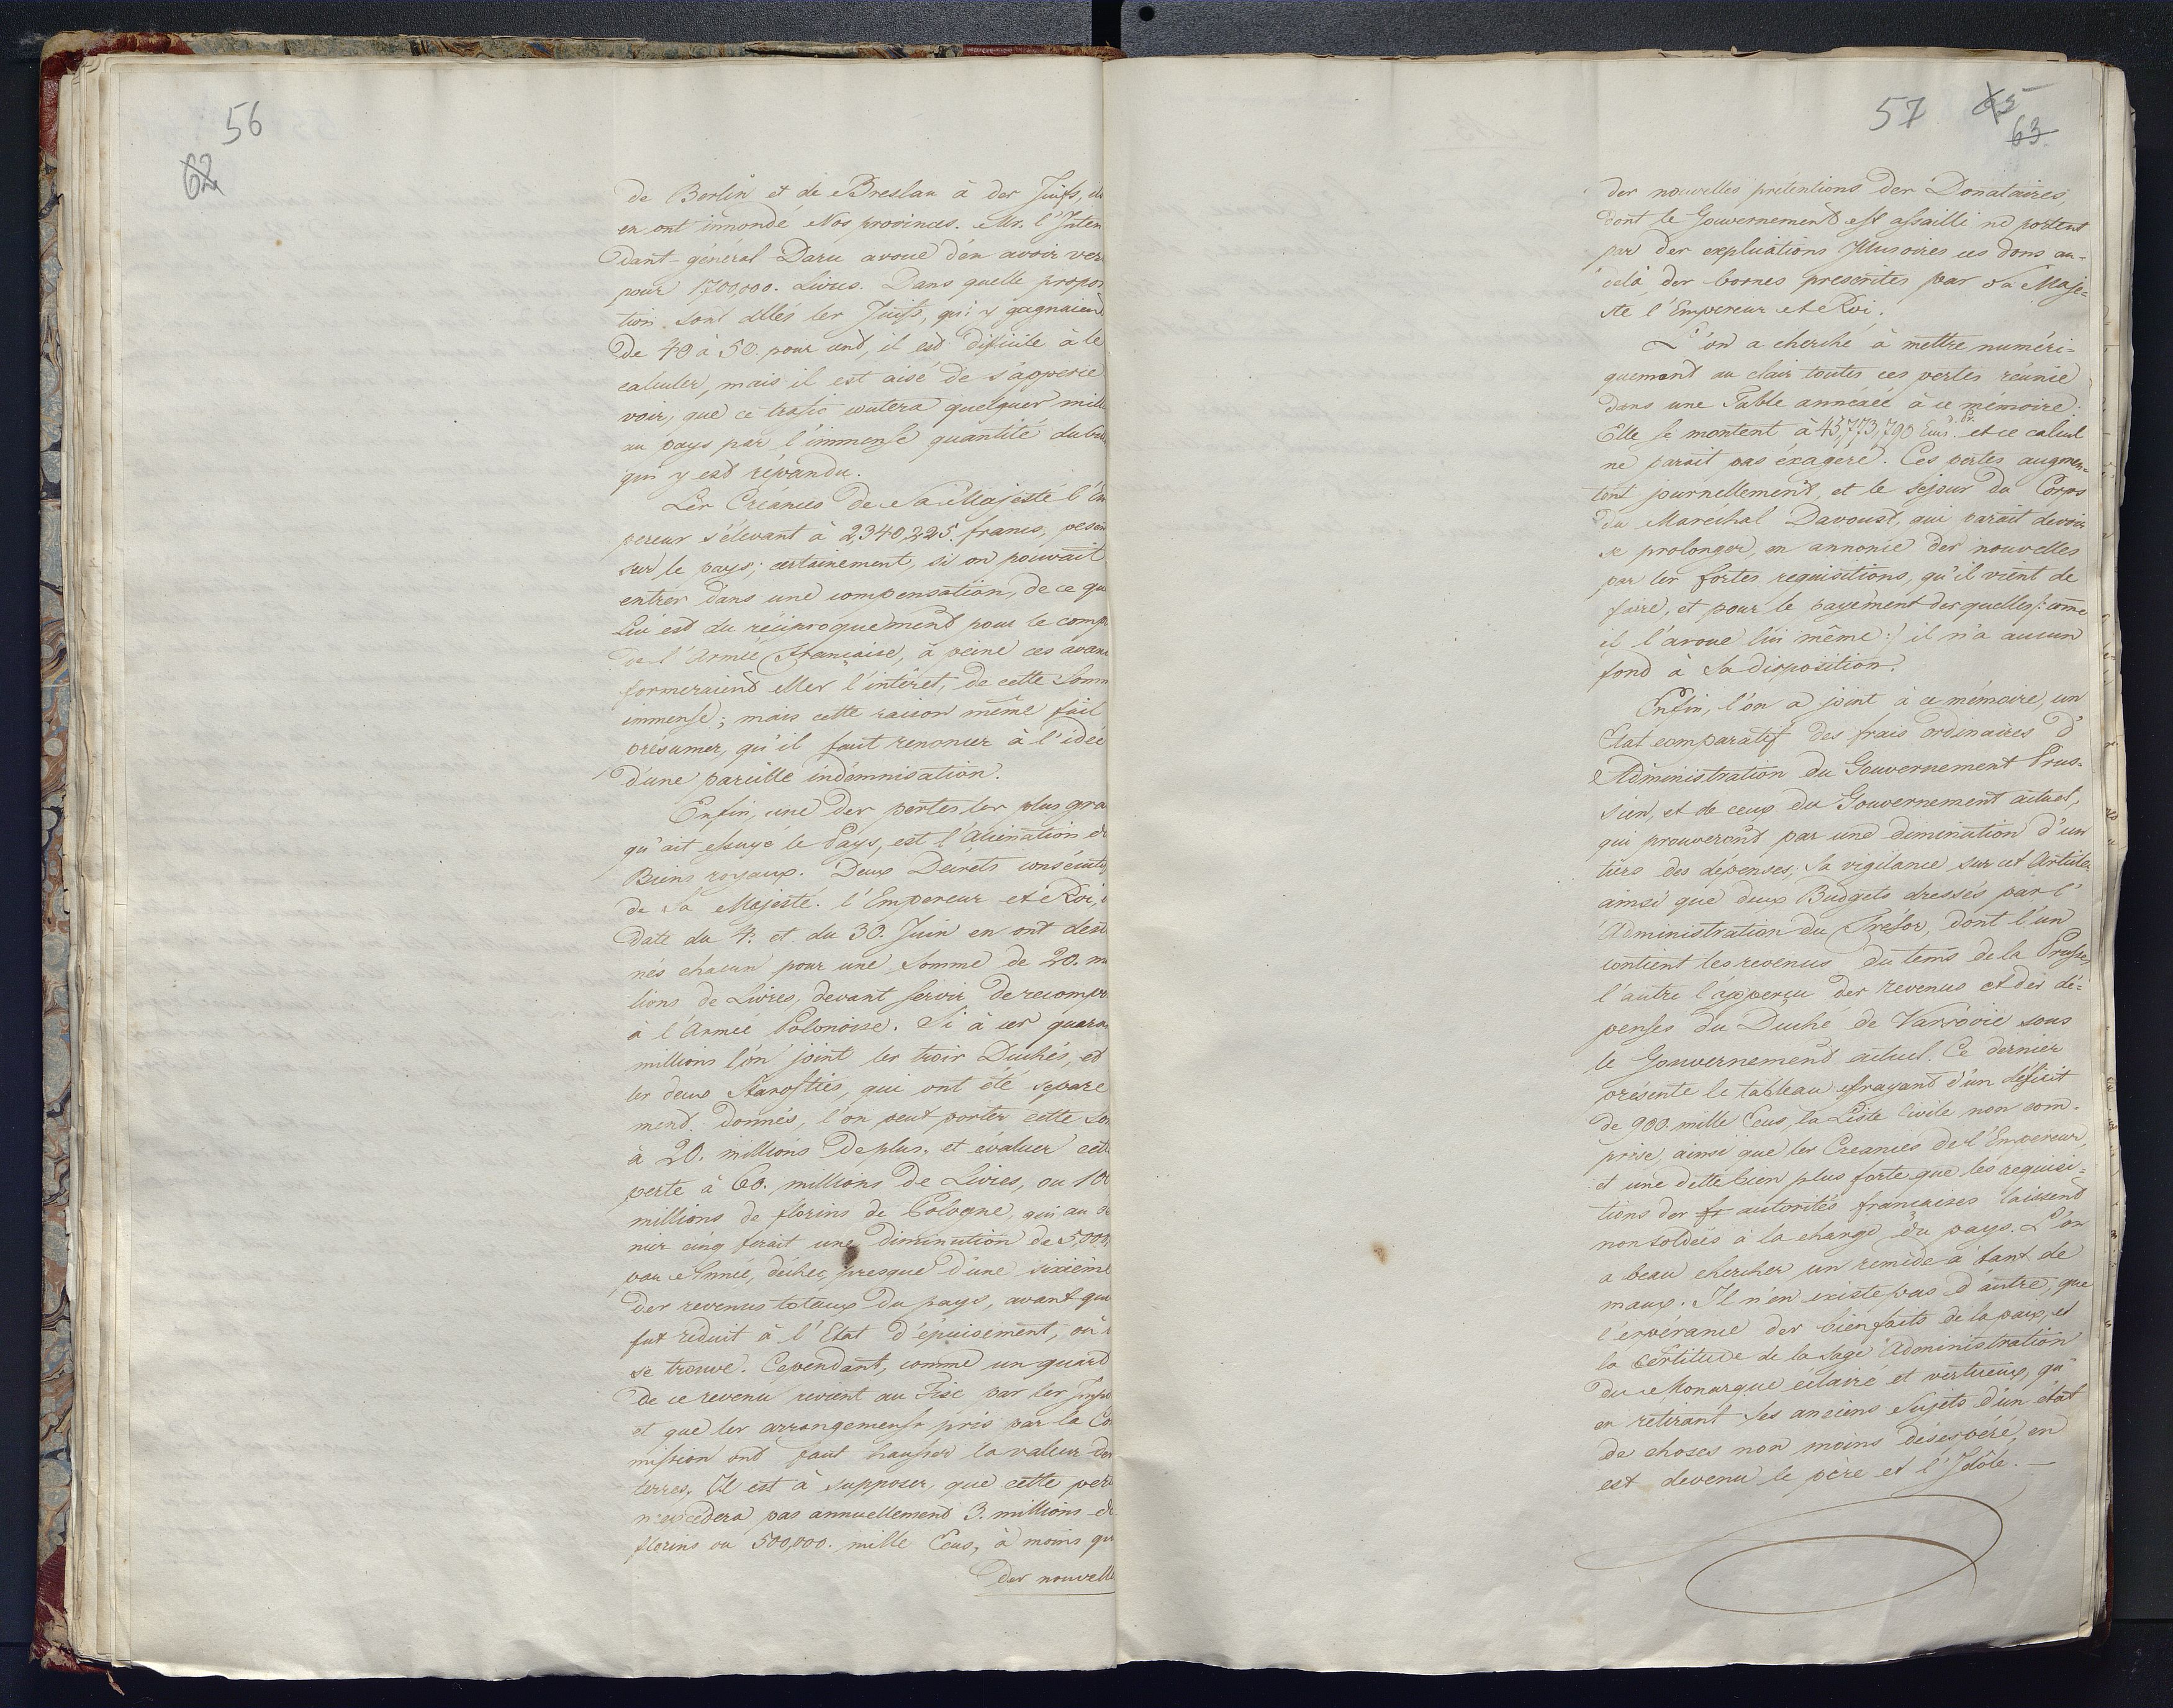 56
62
de Berlin et de Breslau à des Juifs, ils
en ont innondé Nos provinces. Mr. l'Inten
dant-général Daru avoue d'en avoir ver
pour 1,700,000. Livres. Dans quelle propor
tion sont allés les Juifs, qui y gagnaient
de 40 à 50. pour cent, il est dificile à le
calculer, mais il est aisé de s'apperce
voir, que ce trafic coutera quelques mill
au pays par l'immense quantité du
qui y est répandu.
Les Créances de Sa Majesté l'Em
pereur s'élevant à 2,340,225. francs, pesen
sur le pays; certainement, si on pouvait
entrer dans une compensation, de ce qui
lui est du réciproquement pour le comp
de l'Armée française, à peine ces avan
formeraient elles l'intérêt, de cette Somm
immense; mais cette raison même fait
présumer, qu'il faut renoncer à l'idée
d'une pareille indémnisation.
Enfin, une des pertes les plus gra
qu'ait essuyé le Pays, est l'aliénation de
Biens royaux. Deux Décrets consécutifs
de Sa Majesté. l'Empereur et Roi,
date du 4. et du 30. Juin en ont desti
nés chacun pour une somme de 20. mi
lions de Livres, devant servir de recompe
à l'Armée Polonoise. Si à ces quaran
millions l'on joint les trois Duchés, et
les deux Starosties, qui ont été séparé
ment. donnés, l'on peut porter cette som
à 20. millions de plus, et évaluer cette
perte à 60. millions de Livres, ou 100
millions de florins de Pologne, qui au de
nier cinq ferait une diminution de 5,000,
par Année, déchet, presque d'une sixième
des revenus totaux du pays, avant qu'il
fut réduit à l'Etat d'épuisement, où il
se trouve. Cependant, comme un quart
de ce revenu revient au Fisc par les Impo
et que les arrangemens pris par la Co
mission ont faut hausser la valeur des
terres, Il est à supposer, que cette perte
n'excédera pas annuellement 3. millions de
florins ou 500,000. mille Ecus, à moins que
des nouvelle
57 65
63
des nouvelles prétentions des Donataires,
dont le Gouvernement est assailli ne portent
par des explications illusoires ces dons au-
delà des bornes prescrites par Sa Maje=
sté l'Empereur et Roi.
L'on a cherché à mettre numéri=
quement au clair toutes ces pertes réunie
dans une Table annéxée à ce mémoire.
Elle se montent à 45,773,790 Ecus d. Pr. et ce calcul
ne parait pas éxageré. Ces pertes augmen=
tent journellement, et le séjour du Corps
du Maréchal Davoust, qui parait devoir
se prolonger, en annonce des nouvelles
par les fortes requisitions, qu'il vient de
faire, et pour le payement desquelles /: comme
il l'avoue lui même :/ il n'a aucun
fond à sa disposition.
Enfin, l'on a joint à ce mémoire, un
Etat comparatif des frais ordinaires d'
Administration du Gouvernement Prus-
sien, et de ceux du Gouvernement actuel,
qui prouveront par une diminution d'un
tiers des dépenses, sa vigilance sur cet Article,
ainsi que deux Budgets dressés par l'
Administration du Trésor, dont l'un
contient les revenus du tems de la Prusse,
l'autre l'apperçu des revenus et des dé=
penses du Duché de Varsovie sous
le Gouvernement actuel. Ce dernier
présente le tableau effrayant d'un déficit
de 900. mille Ecus, la Liste Civile non com-
prise, ainsi que les Creances de l'Empereur,
et une dette bien plus forte que les requisi=
tions des fr autorités françaises laissent
non soldées à la charge du pays. L'on
a beau chercher un remède à tant de
maux. Il n'en existe pas d'autre, que
l'espérance des bienfaits de la paix, et
la Certitude de la Sage Administration
du Monarque éclairé et vertueux, qu'
en rétirant ses anciens Sujets d'un état
de choses non moins désespéré, en
est devenu le père et l'Idôle. —